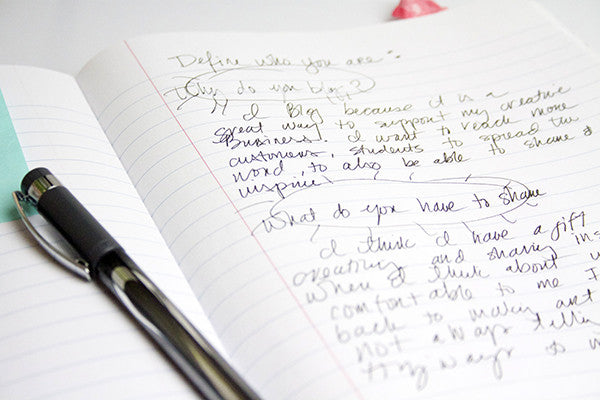 Define who you are:
Why do you blog?
I Blog because it is a
great way to support my creative
Business. I want to reach more
customers, students to spread the
word, to also be able to share &
inspire
What do you have to share
I think I have a gift
creating and sharing
When I think about
comfortable to me I
back to making art
not always